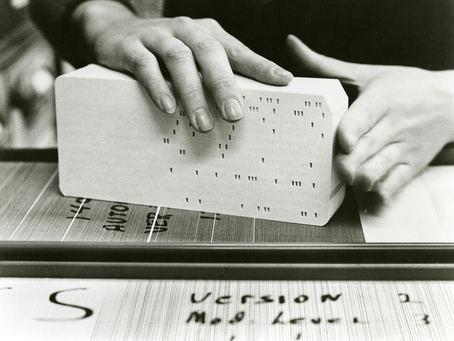 AUTO
VER
S VERSION 2
Mod Level 3